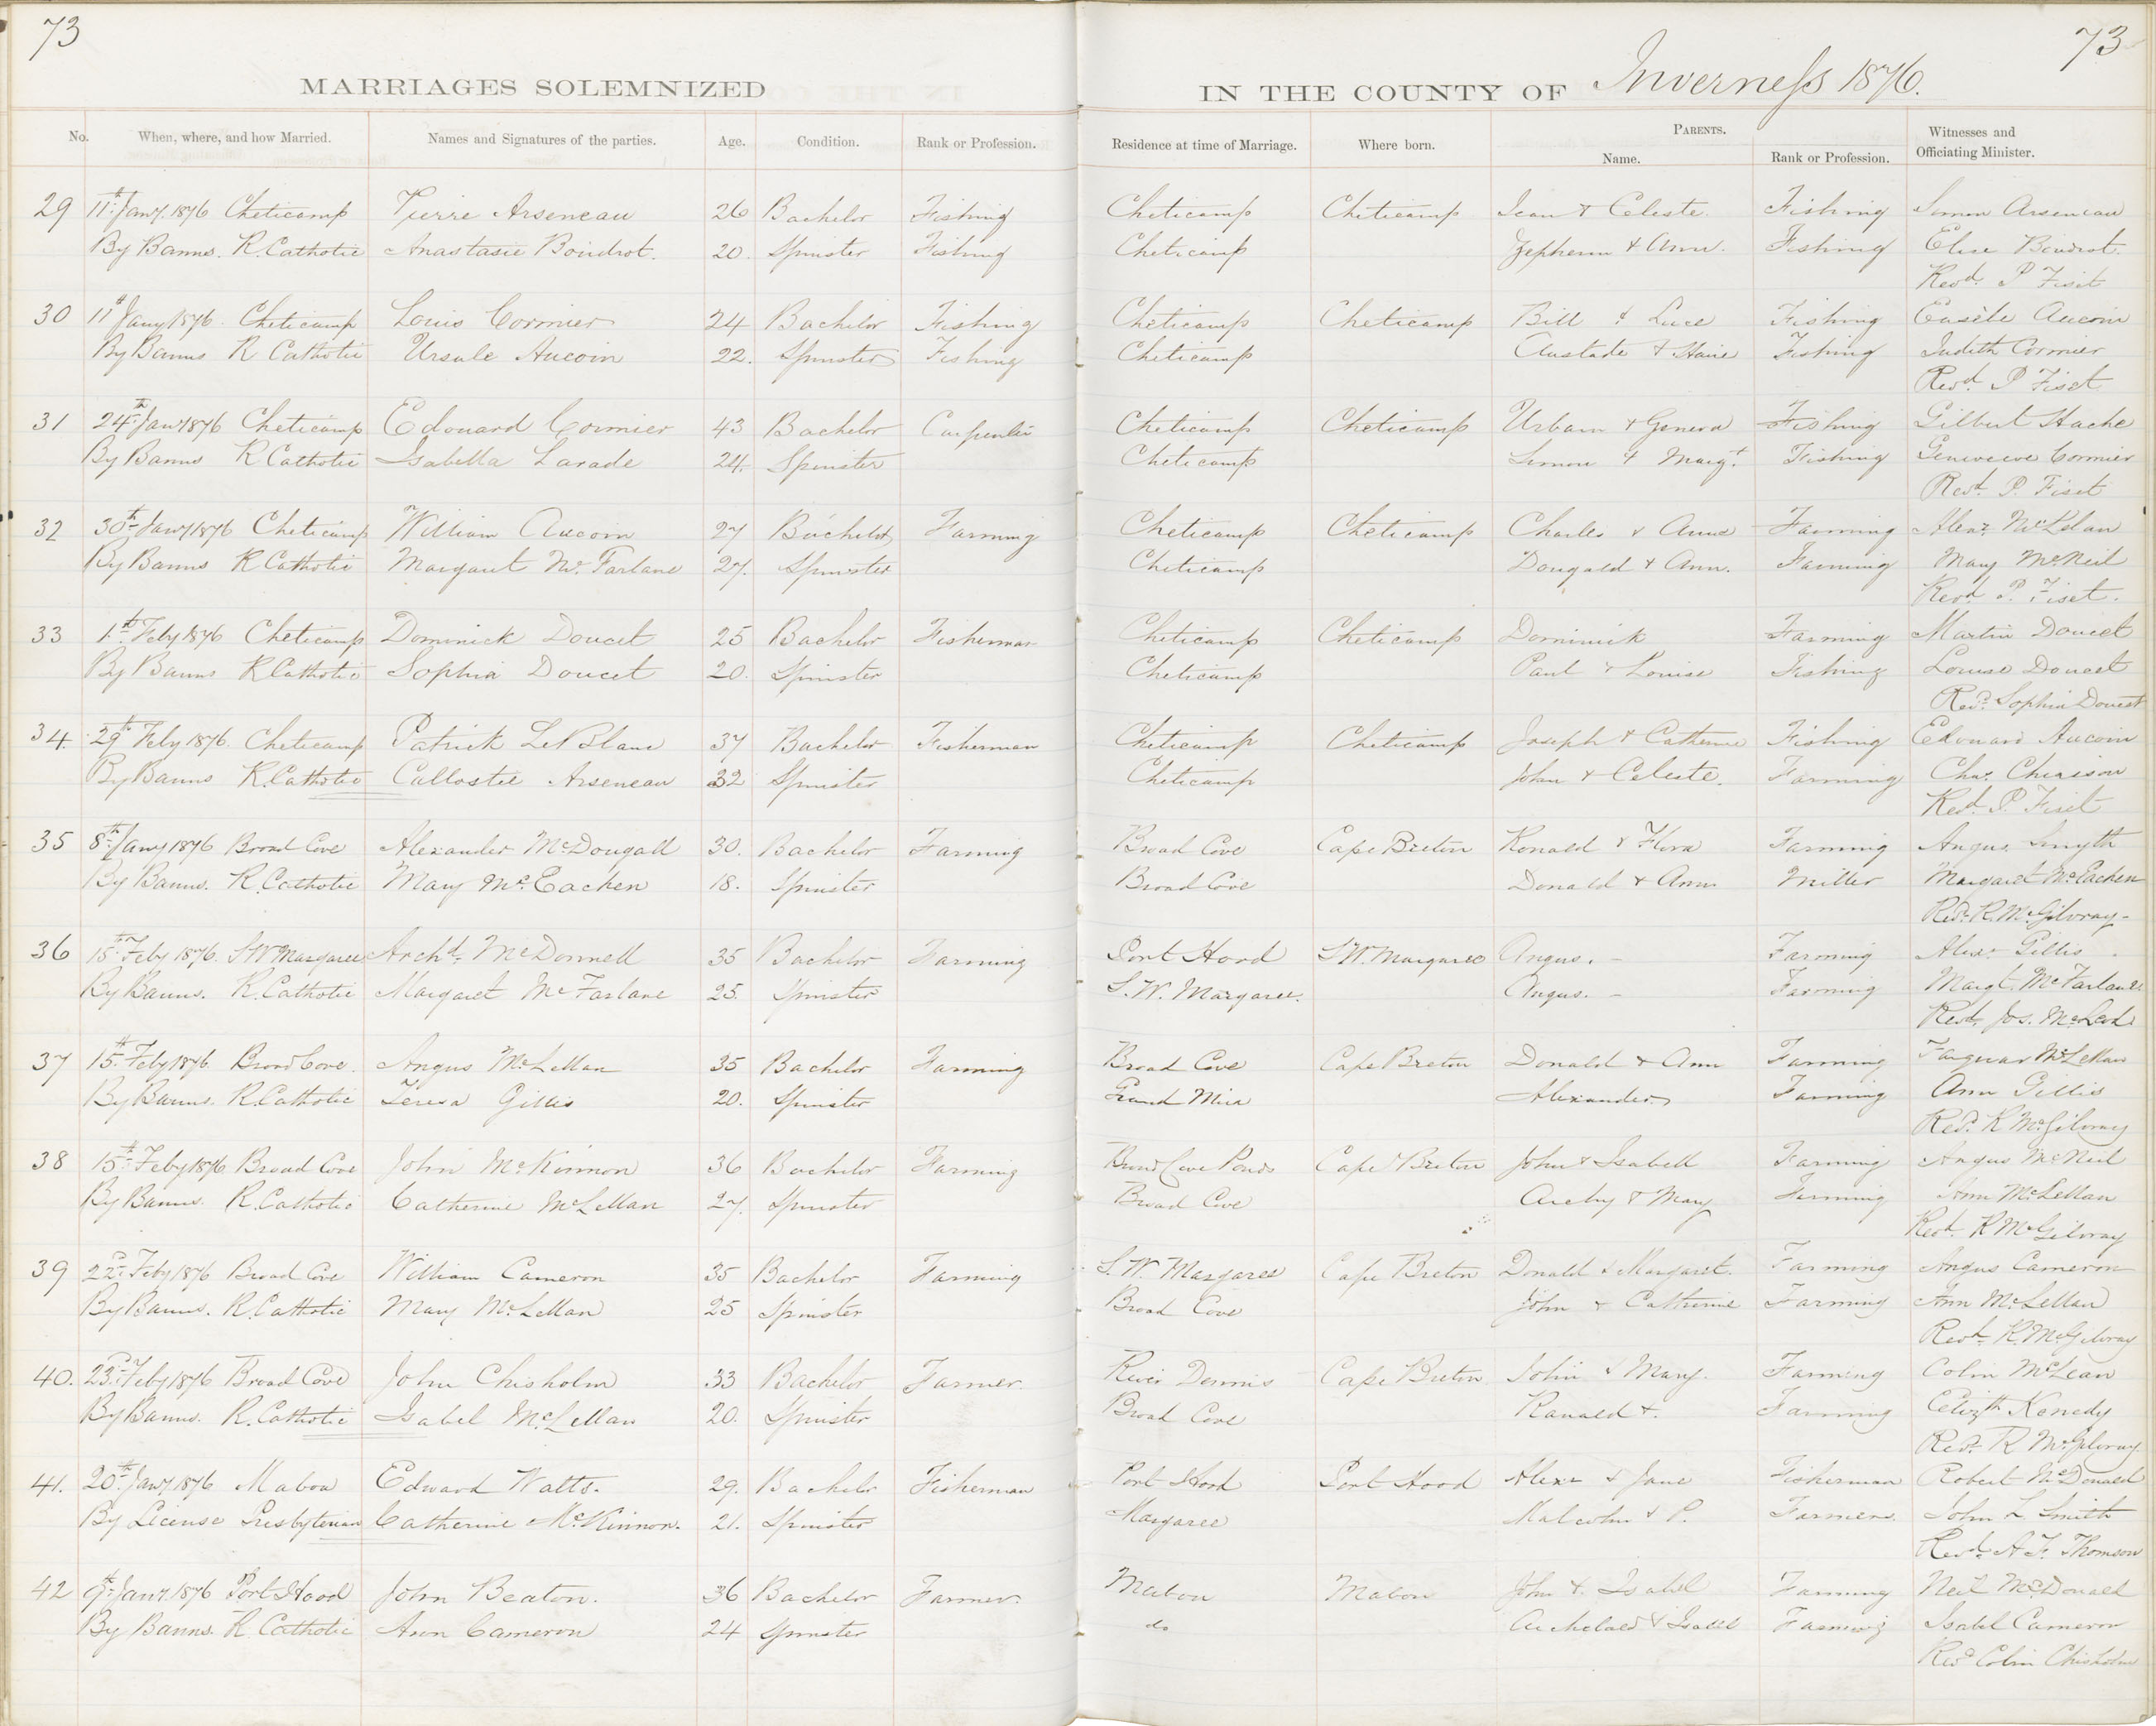 73
73
MARRIAGES SOLEMNIZED
IN THE COUNTY OF Inverness 1876.
No. When, where, and how Married. Names and Signatures of the parties. Age. Condition. Rank or Profession. Residence at time of Marriage. Where born. PARENTS. Name. Rank or Profession. Witnesses and Officiating Minister.
29 11th Jany. 1876 Cheticamp Pierre Arseneau 26 Bachelor Fishing Cheticamp Cheticamp Jean & Celeste. Fishing Simon Arseneau
By Banns. R. Catholic Anastasie Boudrot. 20. Spinster Fishing Cheticamp & Ann. Fishing Elise Boudrot.
Revd. P Fiset
30 11th Jany 1876. Cheticamp Louis Cormier 24 Bachelor Fishing Cheticamp Cheticamp Bill & Luce Fishing Aucoin
By Banns R Catholic Ursule Aucoin 22. Spinster Fishing Cheticamp Fishing Judith Cormier
Revd. P Fiset
31 24th Jany 1876 Cheticamp Edouard Cormier 43 Bachelor Carpenter Cheticamp Cheticamp Urbain & Fishing Gilbert Hache
By Banns R Catholic Isabella Larade 24. Spinster Cheticamp Simon & Margt. Fishing Cormier
Revd. P. Fiset
32 30th Jany 1876 Cheticamp William Aucoin 27 Bachelor Farming Cheticamp Cheticamp Charles & Anne Farming Alexr. McLelan
By Banns R Catholic Margaret McFarlane 27. Spinster Cheticamp Dougald & Ann. Farming Mary McNeil
Revd P. Fiset.
33 1st Feby 1876 Cheticamp Dominick Doucet 25 Bachelor Fisherman Cheticamp Cheticamp Dominick Farming Martin Doucet
By Banns R Catholic Sophia Doucet 20. Spinster Cheticamp Paul & Louise Fishing Louise Doucet
Revd. Sophia Doucet
34. 29th Feby 1876. Cheticamp Patrick LeBlanc 37 Bachelor Fisherman Cheticamp Cheticamp Joseph & Catherine Fishing Edouard Aucoin
By Banns R. Catholic Callostie Arseneau 32 Spinster Cheticamp John & Celeste. Farming Chas. Chiasson
Revd. P. Fiset
35 8th Jany 1876 Broad Cove Alexander McDougall 30. Bachelor Farming Broad Cove Cape Breton Ronald & Flora Farming Angus Smyth
By Banns. R. Catholic Mary McEachen 18. Spinster Broad Cove Donald & Ann Miller Margaret McEachen
Revd. R. McGilvray
36 15th Feby 1876. S W Margaree Archd. McDonnell 35 Bachelor Farming Port Hood S W. Margaree Angus. - Farming Alexr Gillis
By Banns. R. Catholic Margaret McFarlane 25. Spinster S. W. Margaree. Angus. - Farming Margt. McFarlane
Revd. Jos. McLeod
37 15th Feby 1876. Broad Cove. Angus McLellan 35 Bachelor Farming Broad Cove Cape Breton Donald & Ann Farming Farquar McLellan
By Banns. R. Catholic Teresa Gillis 20. Spinster Grand Mira Alexander Farming Ann Gillis
Revd. R McGilvray
38 15th Feby 1876 Broad Cove John McKinnon 36 Bachelor Farming Broad Cove Ponds Cape Breton John & Isabell Farming Angus McNeil
By Banns. R. Catholic Catherine McLellan 27. Spinster Broad Cove Archy & Mary Farming Ann McLellan
Revd. R McGilvray
39 22d. Feby 1876 Broad Cove William Cameron 35 Bachelor Farming S. W. Margaree Cape Breton Donald & Margaret. Farming Angus Cameron
By Banns. R. Catholic Mary McLellan 25 Spinster Broad Cove John & Catherine Farming Ann McLellan
Revd. R. McGilvray
40. 23d. Feby 1876 Broad Cove John Chisholm 33 Bachelor Farmer. River Dennis Cape Breton John & Mary. Farming Colin McLean
By Banns. R. Catholic Isabel McLellan 20. Spinster Broad Cove Ranald &. Farming Elizth Kenedy
Revd. R McGilvray
41. 20th Jany. 1876 Mabou Edward Watts. 29. Bachelor Fisherman Port Hood Port Hood Alexr & Jane Fisherman Robert McDonald
By License Presbyterian Catherine McKinnon. 21. Spinster Margaree Malcolm & P. Farmers. John L Smith
Revd. A. F. Thomson
42 9th Jany. 1876 Port Hood John Beaton. 36 Bachelor Farmer Mabou Mabou John & Isabel Farming Neil McDonald
By Banns. R. Catholic Ann Cameron 24 Spinster do Archibald & Isabel Farming Isabel Cameron
Revd Colin Chisholm